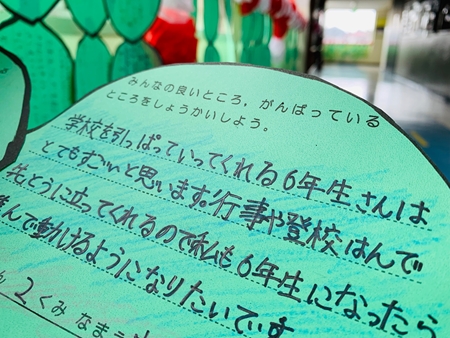 みんなの良いところ、がんばっている
ところをしょうかいしよう。
学校を引っぱっていってくれる6年生さんは
とてもすごいと思います。行事や登校はんで
先とうに立ってくれるので私も6年生になったら
んで動けるようになりたいです
2くみ なまえ